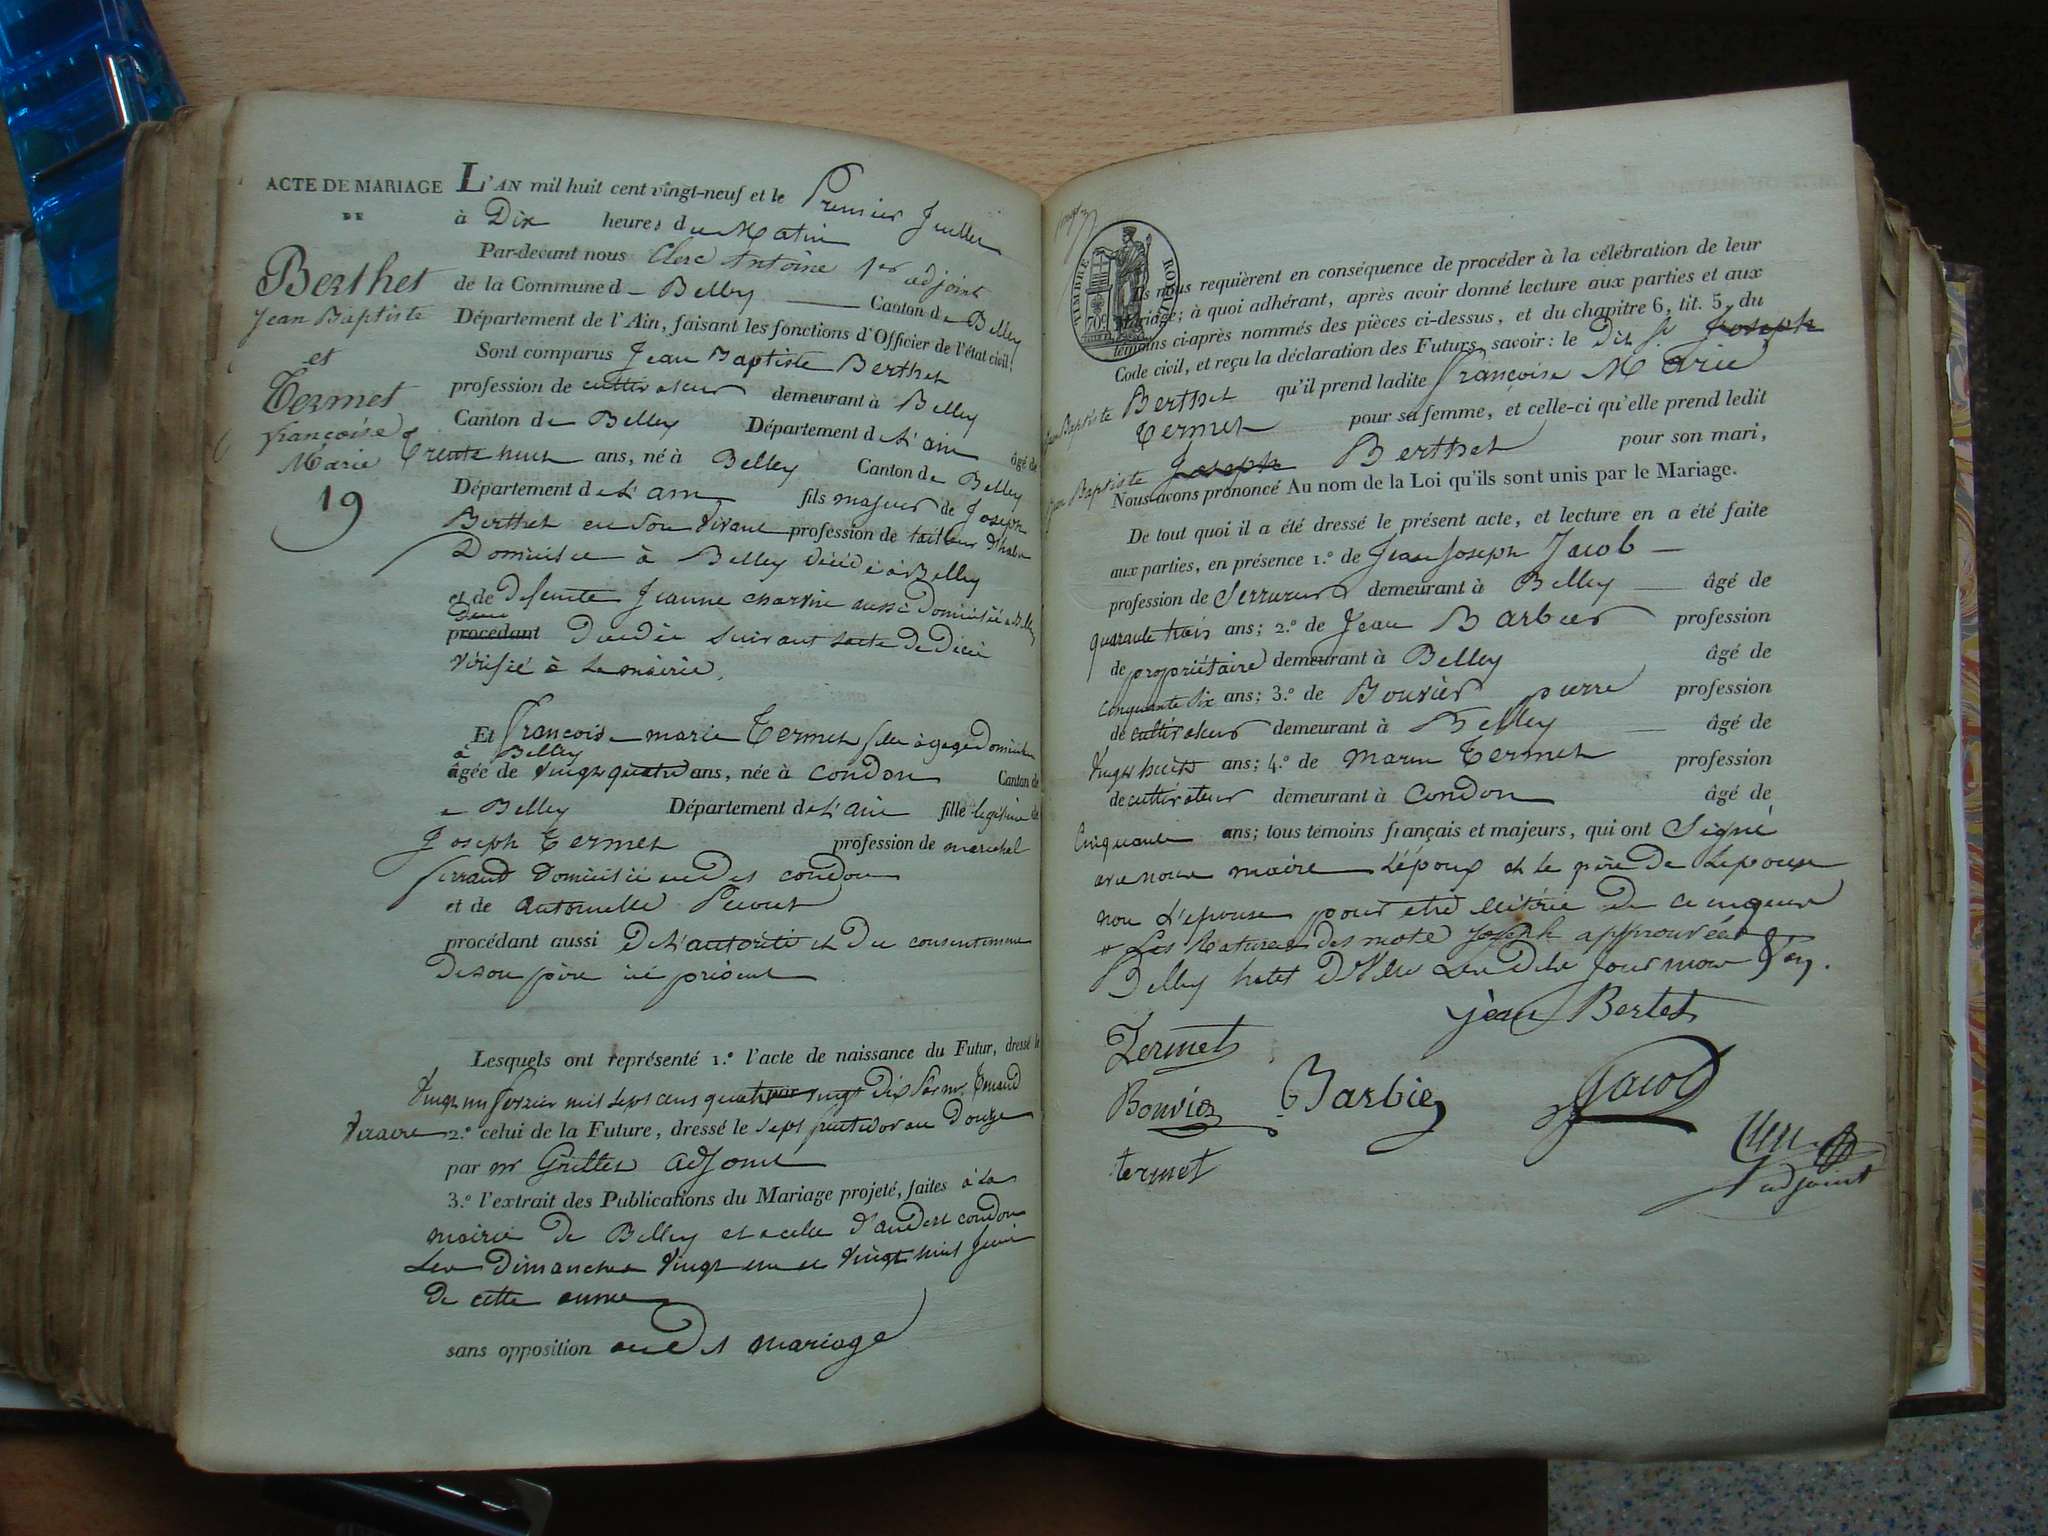 ACTE DE MARIAGE
DE
Berthet
Jean Baptiste
et
Termet
françoise
Marie
19
L'AN mil huit cent vingt-neuf et le Premier Juillet
à Dix heures du Matin
Par-devant nous Clerc Antoine 1er adjoint
de la Commune d- Belley Canton de Belley
Département de l'Ain, faisant les fonctions d'Officier de l'état civil,
Sont comparus Jean Baptiste Berthet
profession de cultivateur demeurant à Belley
Canton de Belley Département de L'ain âgé de
Trente huit ans, né à Belley Canton de Belley
Département de L'ain fils majeur de Joseph
Berthet en Son Vivant profession de tailleur d'habit
Domicilié à Belley Décédé à Belley
et de Defunte Jeanne charvin aussi Domiciliée a Belley
procédant Décédée suivant lacte de Décè
Vérifié à La mairie,
Et françoise marie Termet fille à gage Domiciliée
à Belley
âgée de Vingt quatre ans, née à Condon Canton de
e Belley Département de L'ain fille legitime de
Joseph Termet profession de marechal
ferrand Domicilié au dt condon
et de Antoinette
procédant aussi De L'autorité et Du consentement
De son père ici présent
Lesquels ont représenté 1.º l'acte de naissance du Futur, dressé le
Vingt un fevrier mil sept cens quatre vingt Dix Par mr
Vicaire 2.º celui de la Future, dressé le sept au Douze
par mr Grillet adjoint
3.º l'extrait des Publications du Mariage projeté, faites à La
mairie De Belley et a celle d'andert condon
Les Dimanches Vingt un et Vingt huit Juin
De cette année
sans opposition au Dt mariage
TIMBRE ROYAL
70c
Ils nous requièrent en conséquence de procéder à la célébration de leur
Mariage; à quoi adhérant, après avoir donné lecture aux parties et aux
témoins ci-après nommés des pièces ci-dessus, et du chapitre 6, tit. 5, du
Code civil, et reçu la déclaration des Futurs, savoir: le Dit Sr Joseph
Jean Baptiste Berthet qu'il prend ladite françoise Marie
Termet pour sa femme, et celle-ci qu'elle prend ledit
Jean Baptiste Joseph Berthet pour son mari,
Nous avons prononcé Au nom de la Loi qu'ils sont unis par le Mariage.
De tout quoi il a été dressé le présent acte, et lecture en a été faite
aux parties, en présence 1.º de Jean Joseph Jacob
profession de Serrurier demeurant à Belley âgé de
quarante trois ans; 2.º de Jean Barbier profession
de propriétaire demeurant à Belley âgé de
Cinquante Six ans; 3.º de Bouvier pierre profession
de cultivateur demeurant à Belley âgé de
Vingt huit ans; 4.º de Marin Termet profession
de cultivateur demeurant à Condon âgé de
Cinquante ans; tous témoins français et majeurs, qui ont Signé
avec nous maire L'époux et le père De Lépouse
non L'épouse pour etre illitérée De ce enquise
+ Les Ratures des mots joseph approuvées
Belley hotel D'Ville Les Dits jour mois & an.
jean Bertet
Termet
Bouvier Barbier Jacob
termet
Clerc
adjoint